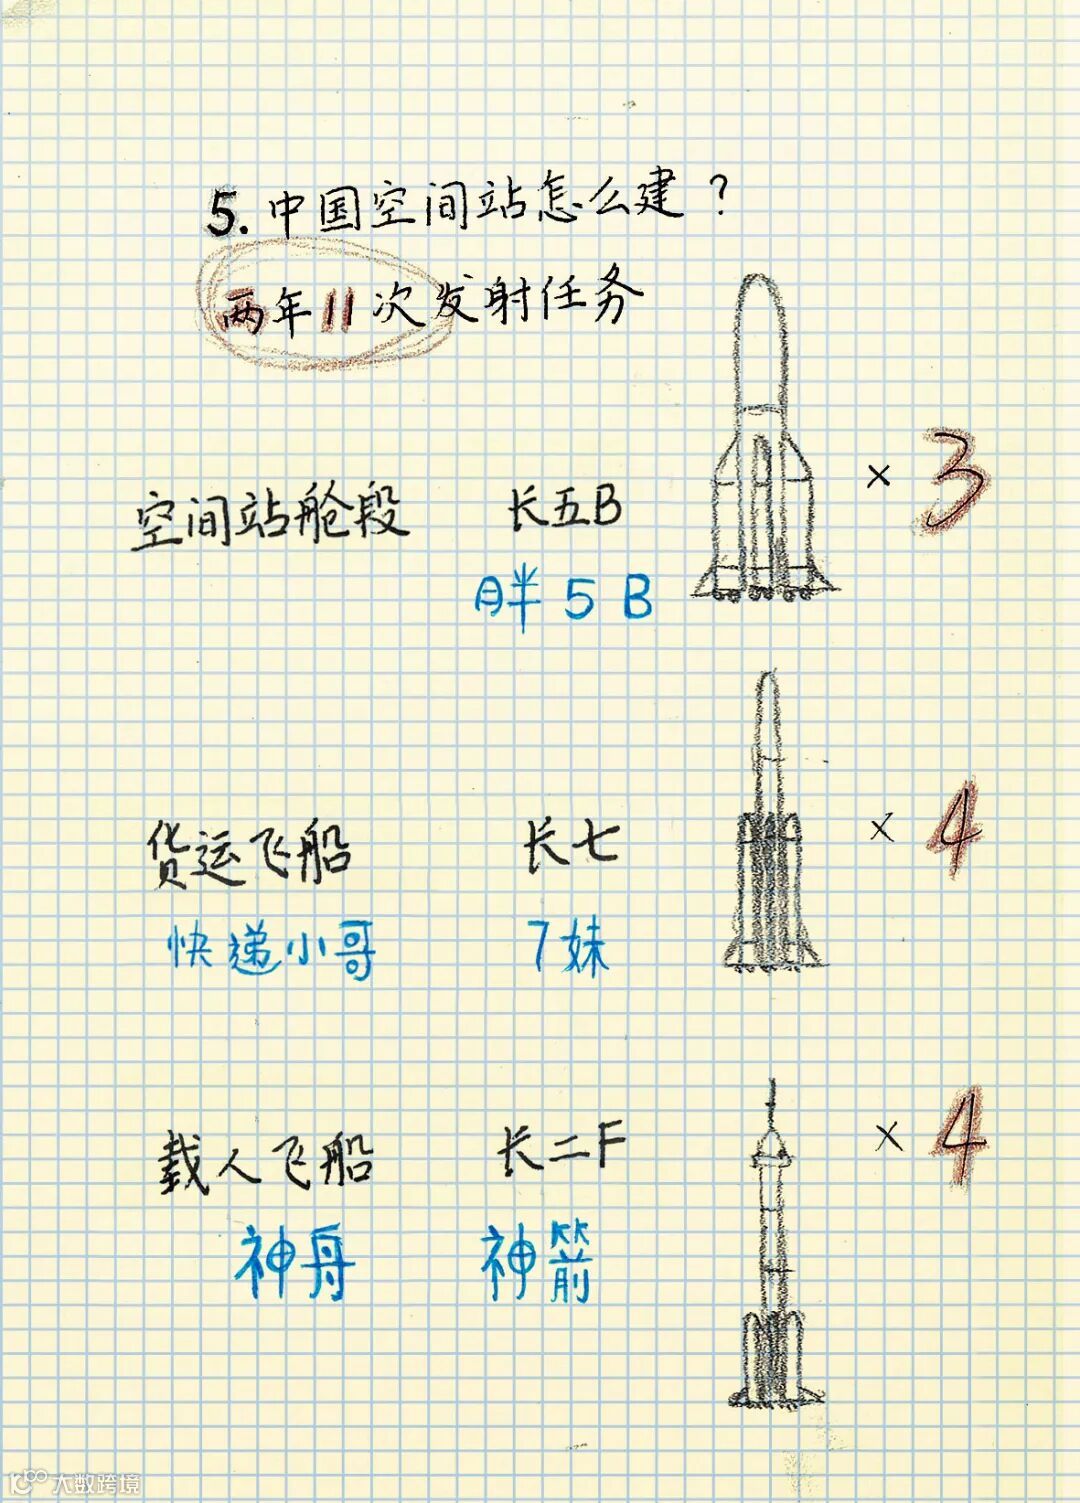 5. 中国空间站怎么建？
两年11次发射任务
空间站舱段 长五B × 3
胖5B
货运飞船 长七 × 4
快递小哥 7妹
载人飞船 长二F × 4
神舟 神箭
大数跨境